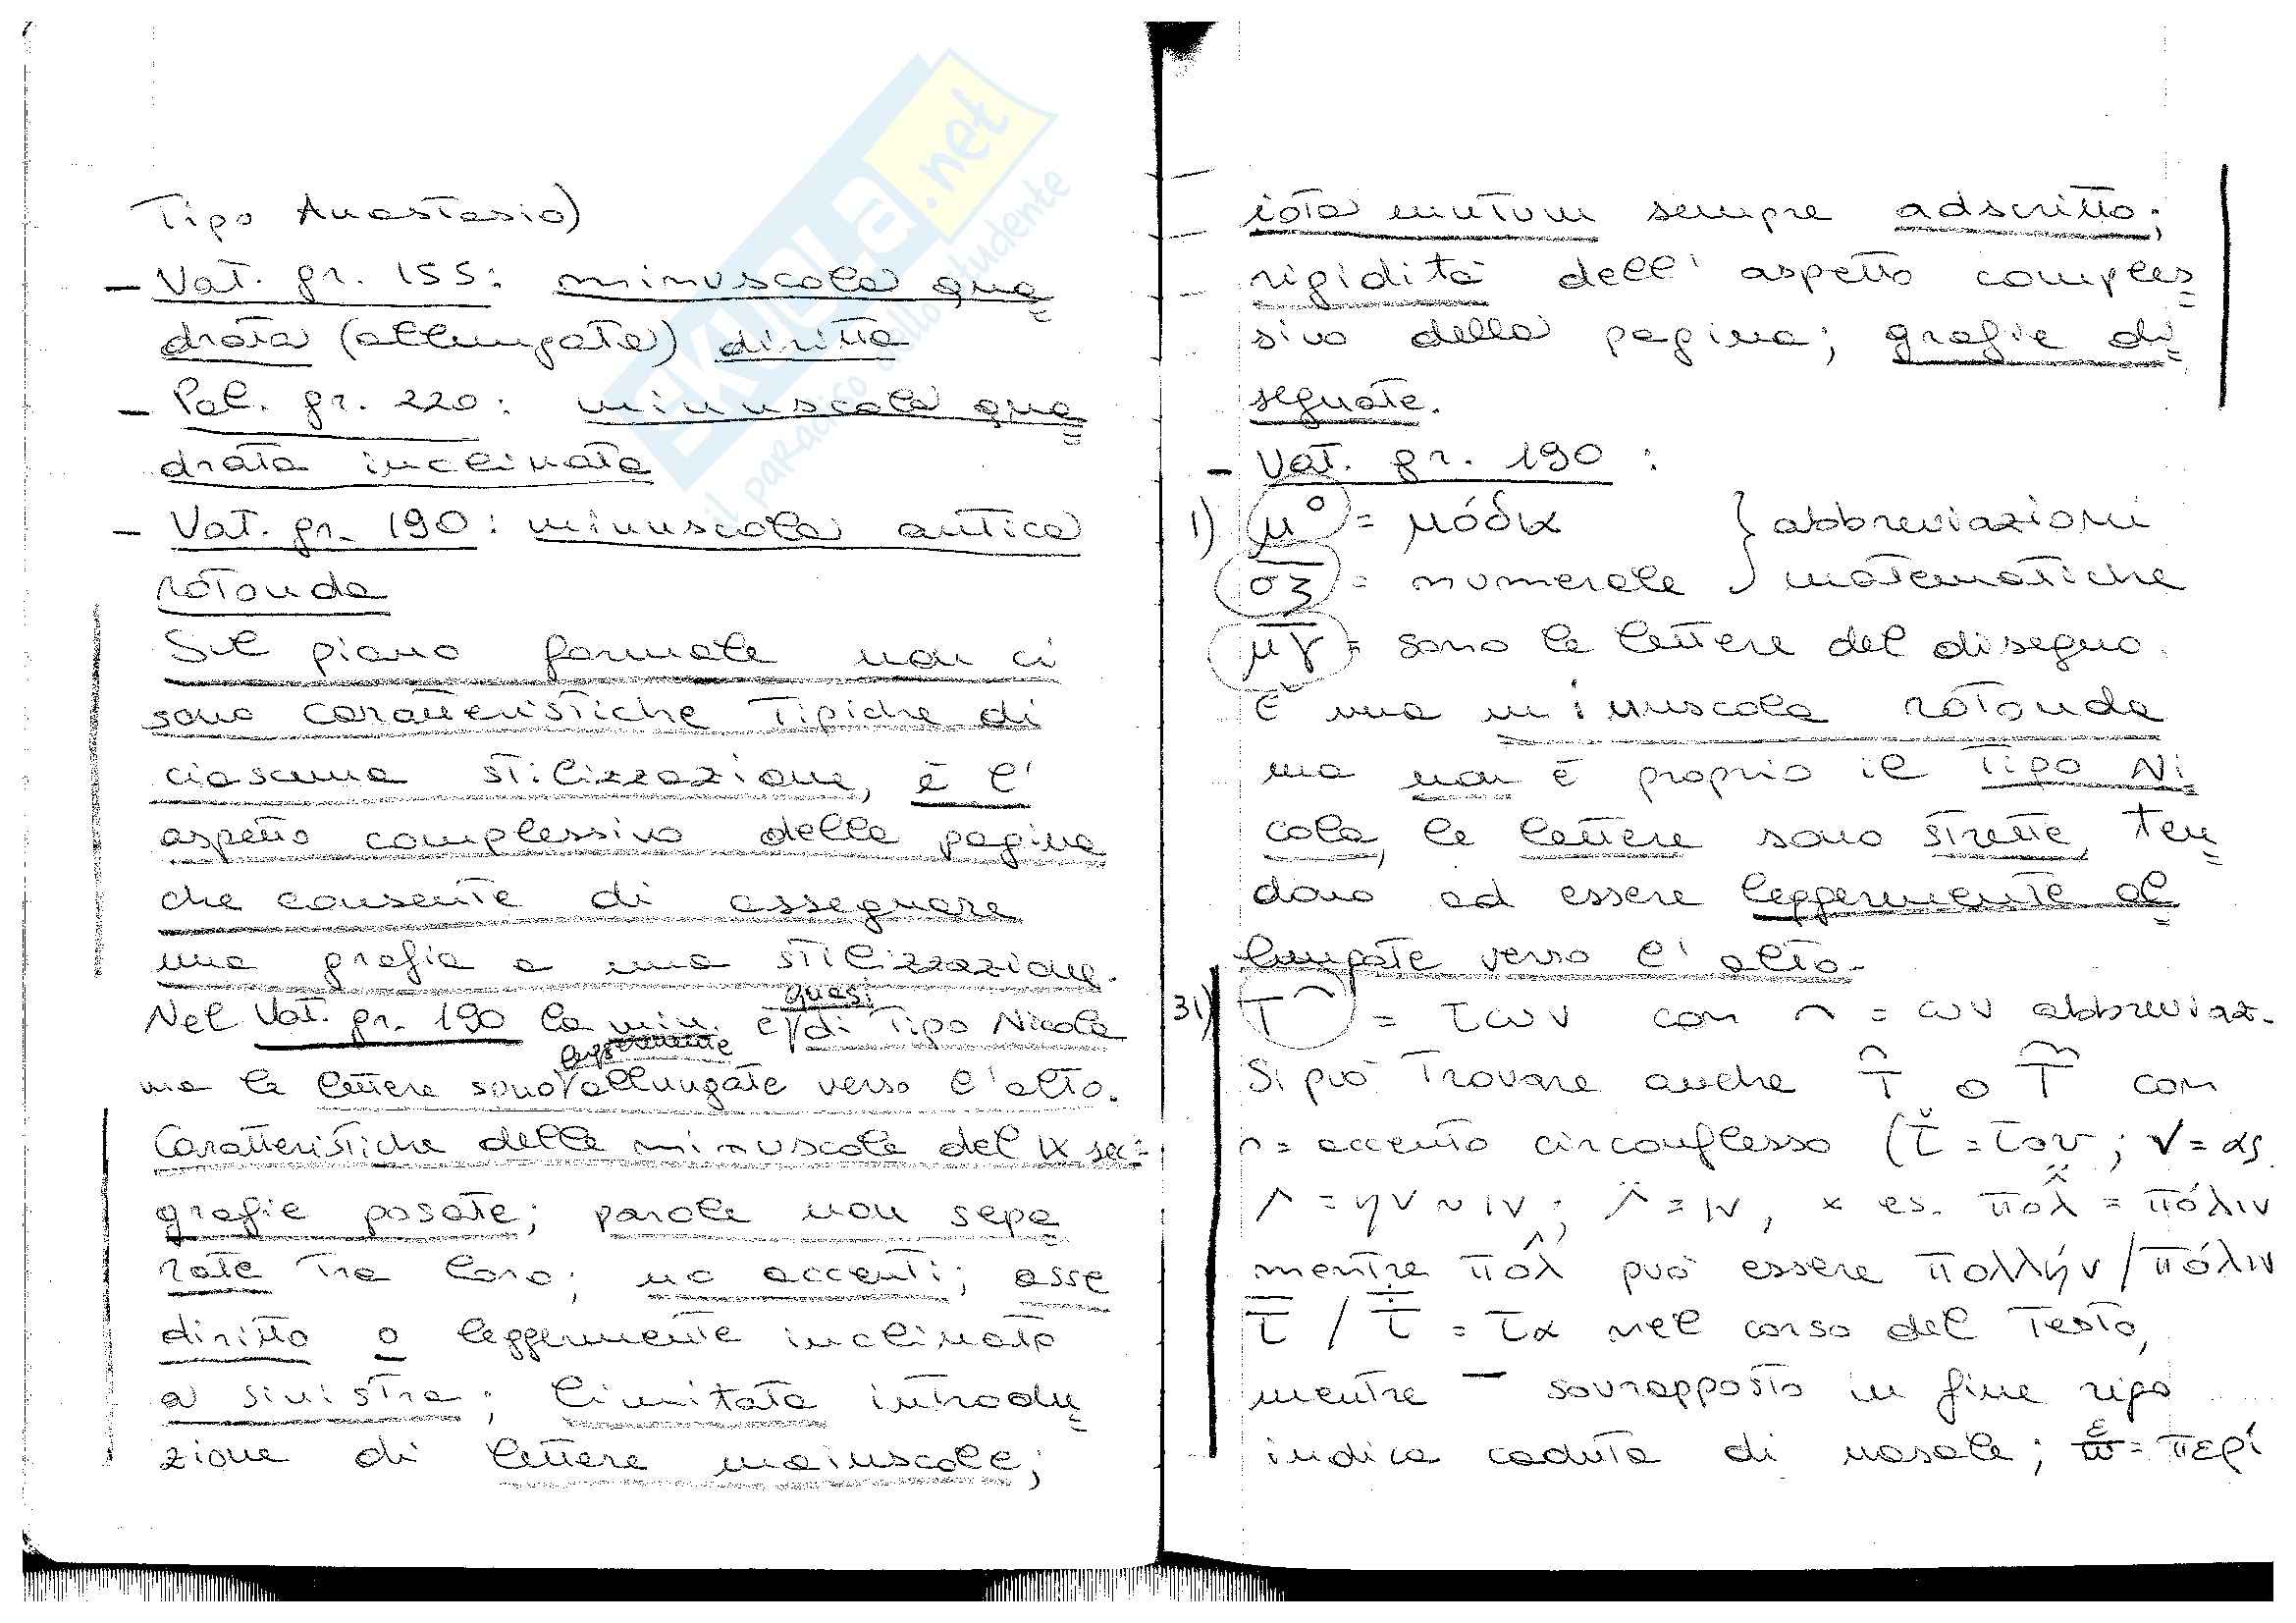 Tipo Anastasio)
- Vat. gr. 155: minuscola qua=
drata (allungata) diritta
- Pal. gr. 220: minuscola qua=
drata inclinata
- Vat. gr. 190: minuscola antica
rotonda
Sul piano formale non ci
sono caratteristiche tipiche di
ciascuna stilizzazione, è l'
aspetto complessivo della pagina
che consente di assegnare
una grafia a una stilizzazione.
Nel Vat. gr. 190 la min. è quasi di tipo Nicola
ma le lettere sono leggermente allungate verso l'alto.
Caratteristiche delle minuscole del IX sec:
grafie posate; parole non sepa=
rate tra loro; no accenti; asse
diritto o leggermente inclinato
a sinistra; limitata introdu=
zione di lettere maiuscole;
iota mutum sempre adscritto;
rigidità dell'aspetto comples=
sivo della pagina; grafie di=
segnate.
- Vat. gr. 190:
1) μ° = μόδια } abbreviazioni
οξ = numerale } matematiche
μγ = sono le lettere del disegno.
È una minuscola rotonda
ma non è proprio il tipo Ni=
cola, le lettere sono strette, ten=
dono ad essere leggermente al=
lungate verso l'alto.
31) T = των con = ων abbreviaz.
Si può trovare anche T o T con
= accento circonflesso (τ = τον; = ας
= ην ~ ιν; = ιν, x es. πολ = πόλιν
mentre πολ può essere πολλήν/πόλιν)
τ / τ = τα nel corso del testo,
mentre - sovrapposto in fine riga
indica caduta di nasale; = περί
ekuola.net
il paradiso dello studente